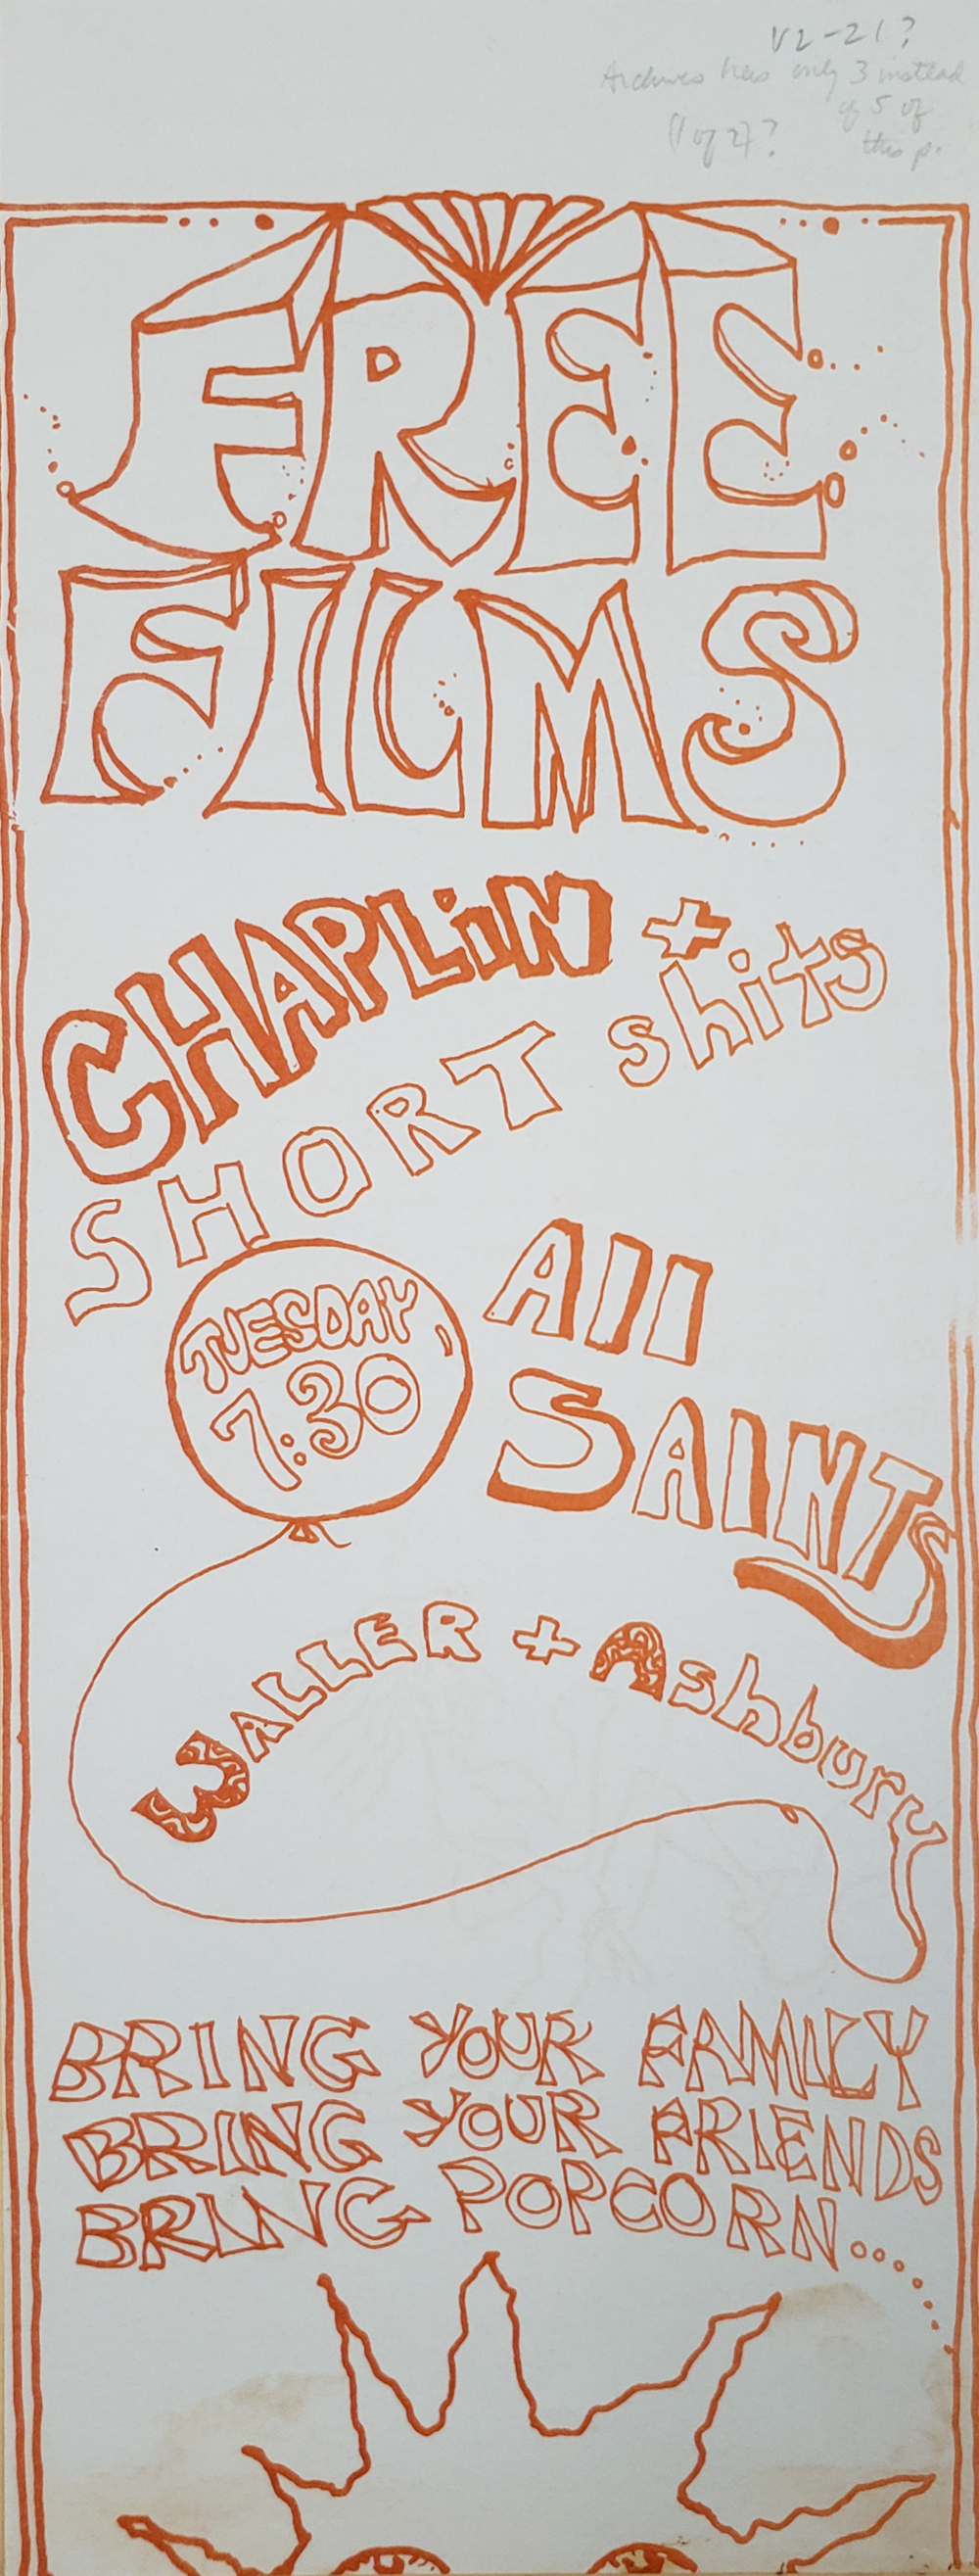 V2-21?
Archives has only 3 instead
of 5 of
(1 of 2)? this p.
FREE
FILMS
CHAPLiN +
SHORT shits
TUESDAY
7:30
All
SAINTS
WALLER + Ashbury
BRING YOUR FAMILY
BRING YOUR FRIENDS
BRING POPCORN....